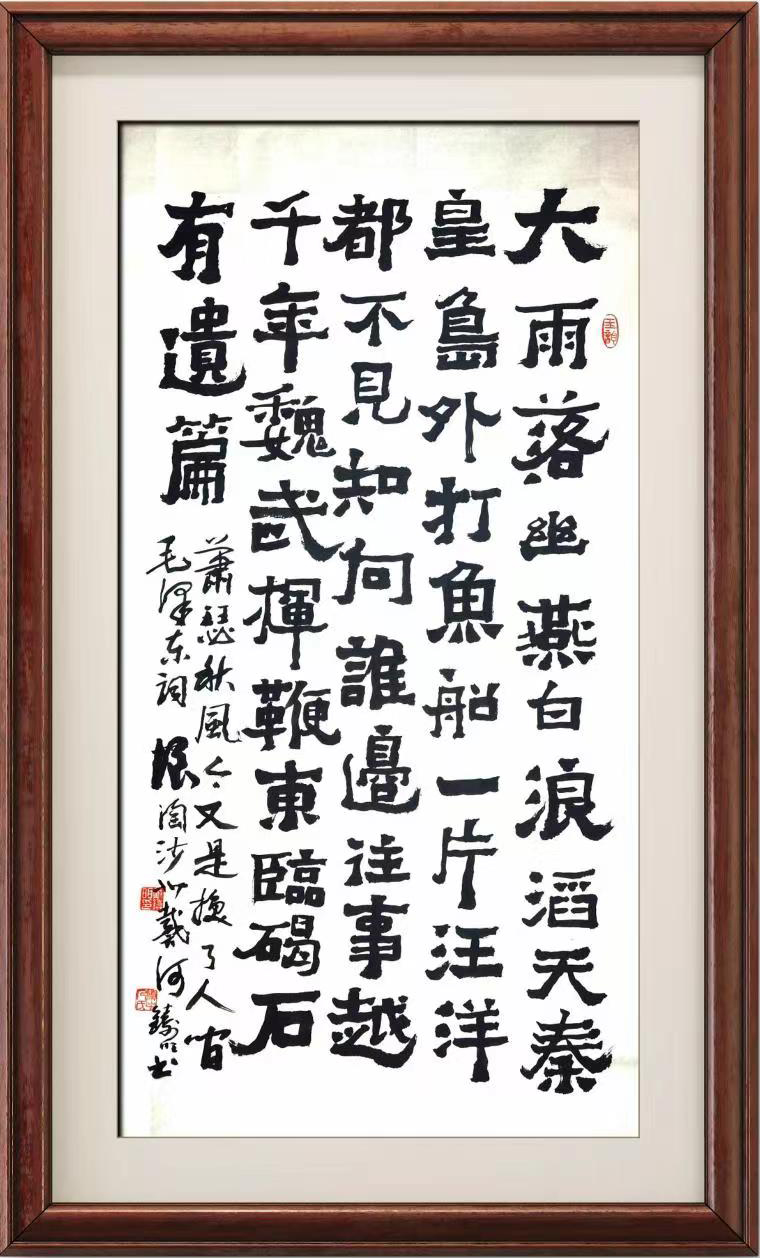 大雨落幽燕白浪滔天秦
皇島外打魚船一片汪洋
都不見知向誰邊往事越
千年魏武揮鞭東臨碣石
有遺篇
蕭瑟秋風今又是換了人间
毛澤东詞浪淘沙北戴河鑄明书